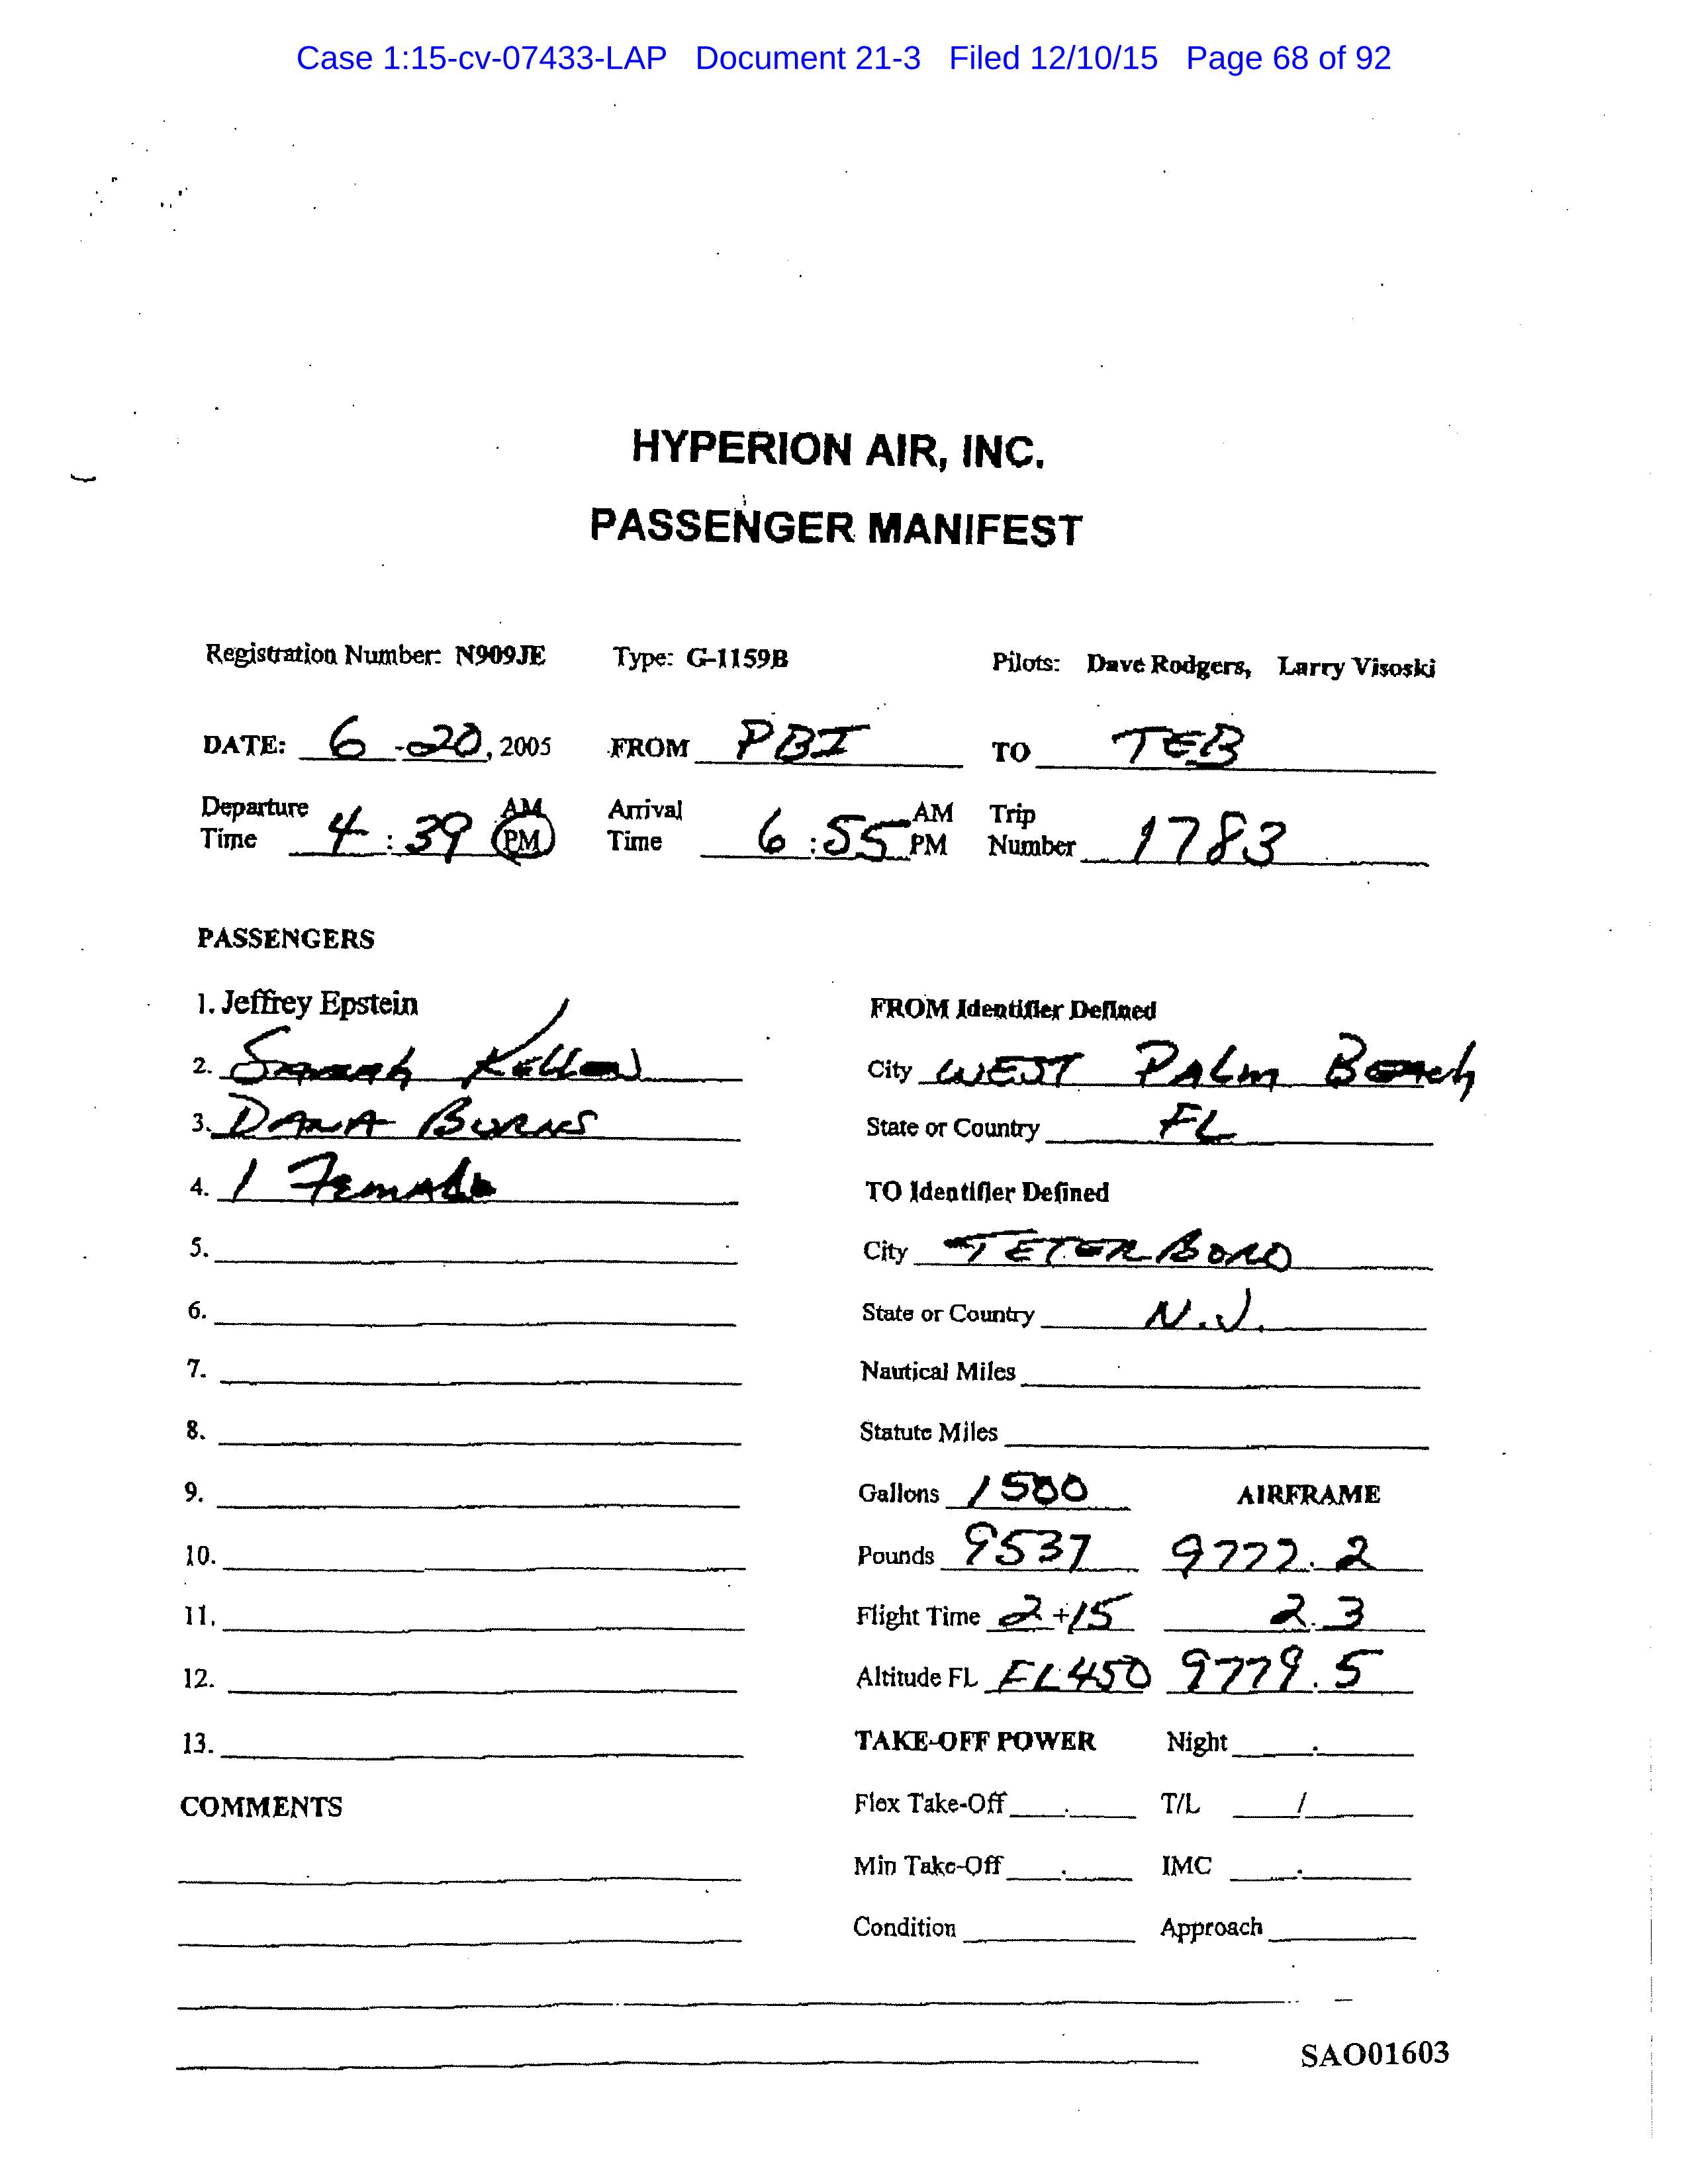 Case 1:15-cv-07433-LAP Document 21-3 Filed 12/10/15 Page 68 of 92
HYPERION AIR, INC.
PASSENGER MANIFEST
Registration Number: N909JE Type: G-1159B Pilots: Dave Rodgers, Larry Visoski
DATE: 6 - 20, 2005 FROM PBI TO TEB
Departure Time 4:39 AM PM Arrival Time 6:55 AM PM Trip Number 1783
PASSENGERS
1. Jeffrey Epstein
FROM Identifier Defined
2. Sarah Kellen
City WEST PALM Beach
3. DANA BURNS
State or Country FL
4. 1 Female
TO Identifier Defined
5.
City TETERBORO
6.
State or Country N.J.
7.
Nautical Miles
8.
Statute Miles
9.
Gallons 1500 AIRFRAME
10.
Pounds 9537 9777.2
11.
Flight Time 2+15 2.3
12.
Altitude FL FL450 9779.5
13.
TAKE-OFF POWER Night .
COMMENTS
Flex Take-Off . T/L /
Min Take-Off . IMC .
Condition Approach
SAO01603